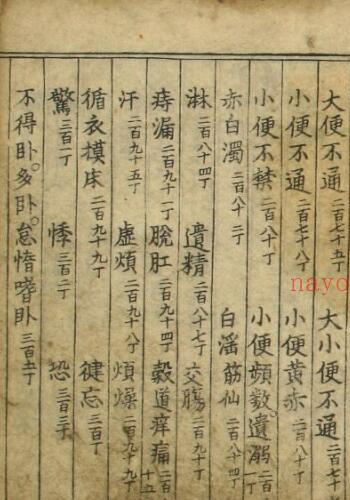 大便不通二百七十五丁 大小便不通二百七十
小便不通二百七十八丁 小便黄赤二百八十丁
小便不禁二百八十丁 小便頻数。遺溺二百
赤白濁二百八十三丁 白淫筋仙二百八十四丁
淋二百八十四丁 遺精二百八十七丁 交腸二百九十丁
痔漏二百九十一丁 脱肛二百九十四丁 穀道痒痛二百
汗二百九十五丁 虚煩二百九十八丁 煩燥二百九十九
循衣摸床二百九十九丁 健忘三百丁
驚三百一丁 悸三百二丁 恐三百三丁
不得卧。多卧。怠惰嗜卧三百
nayo